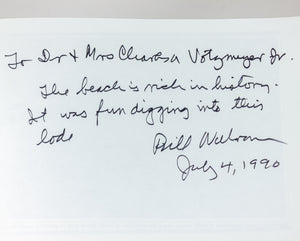 To Dr & Mrs Votzmeyer Jr.
The beach is rich in history.
It was fun digging into this
lode
Bill
July 4, 1990